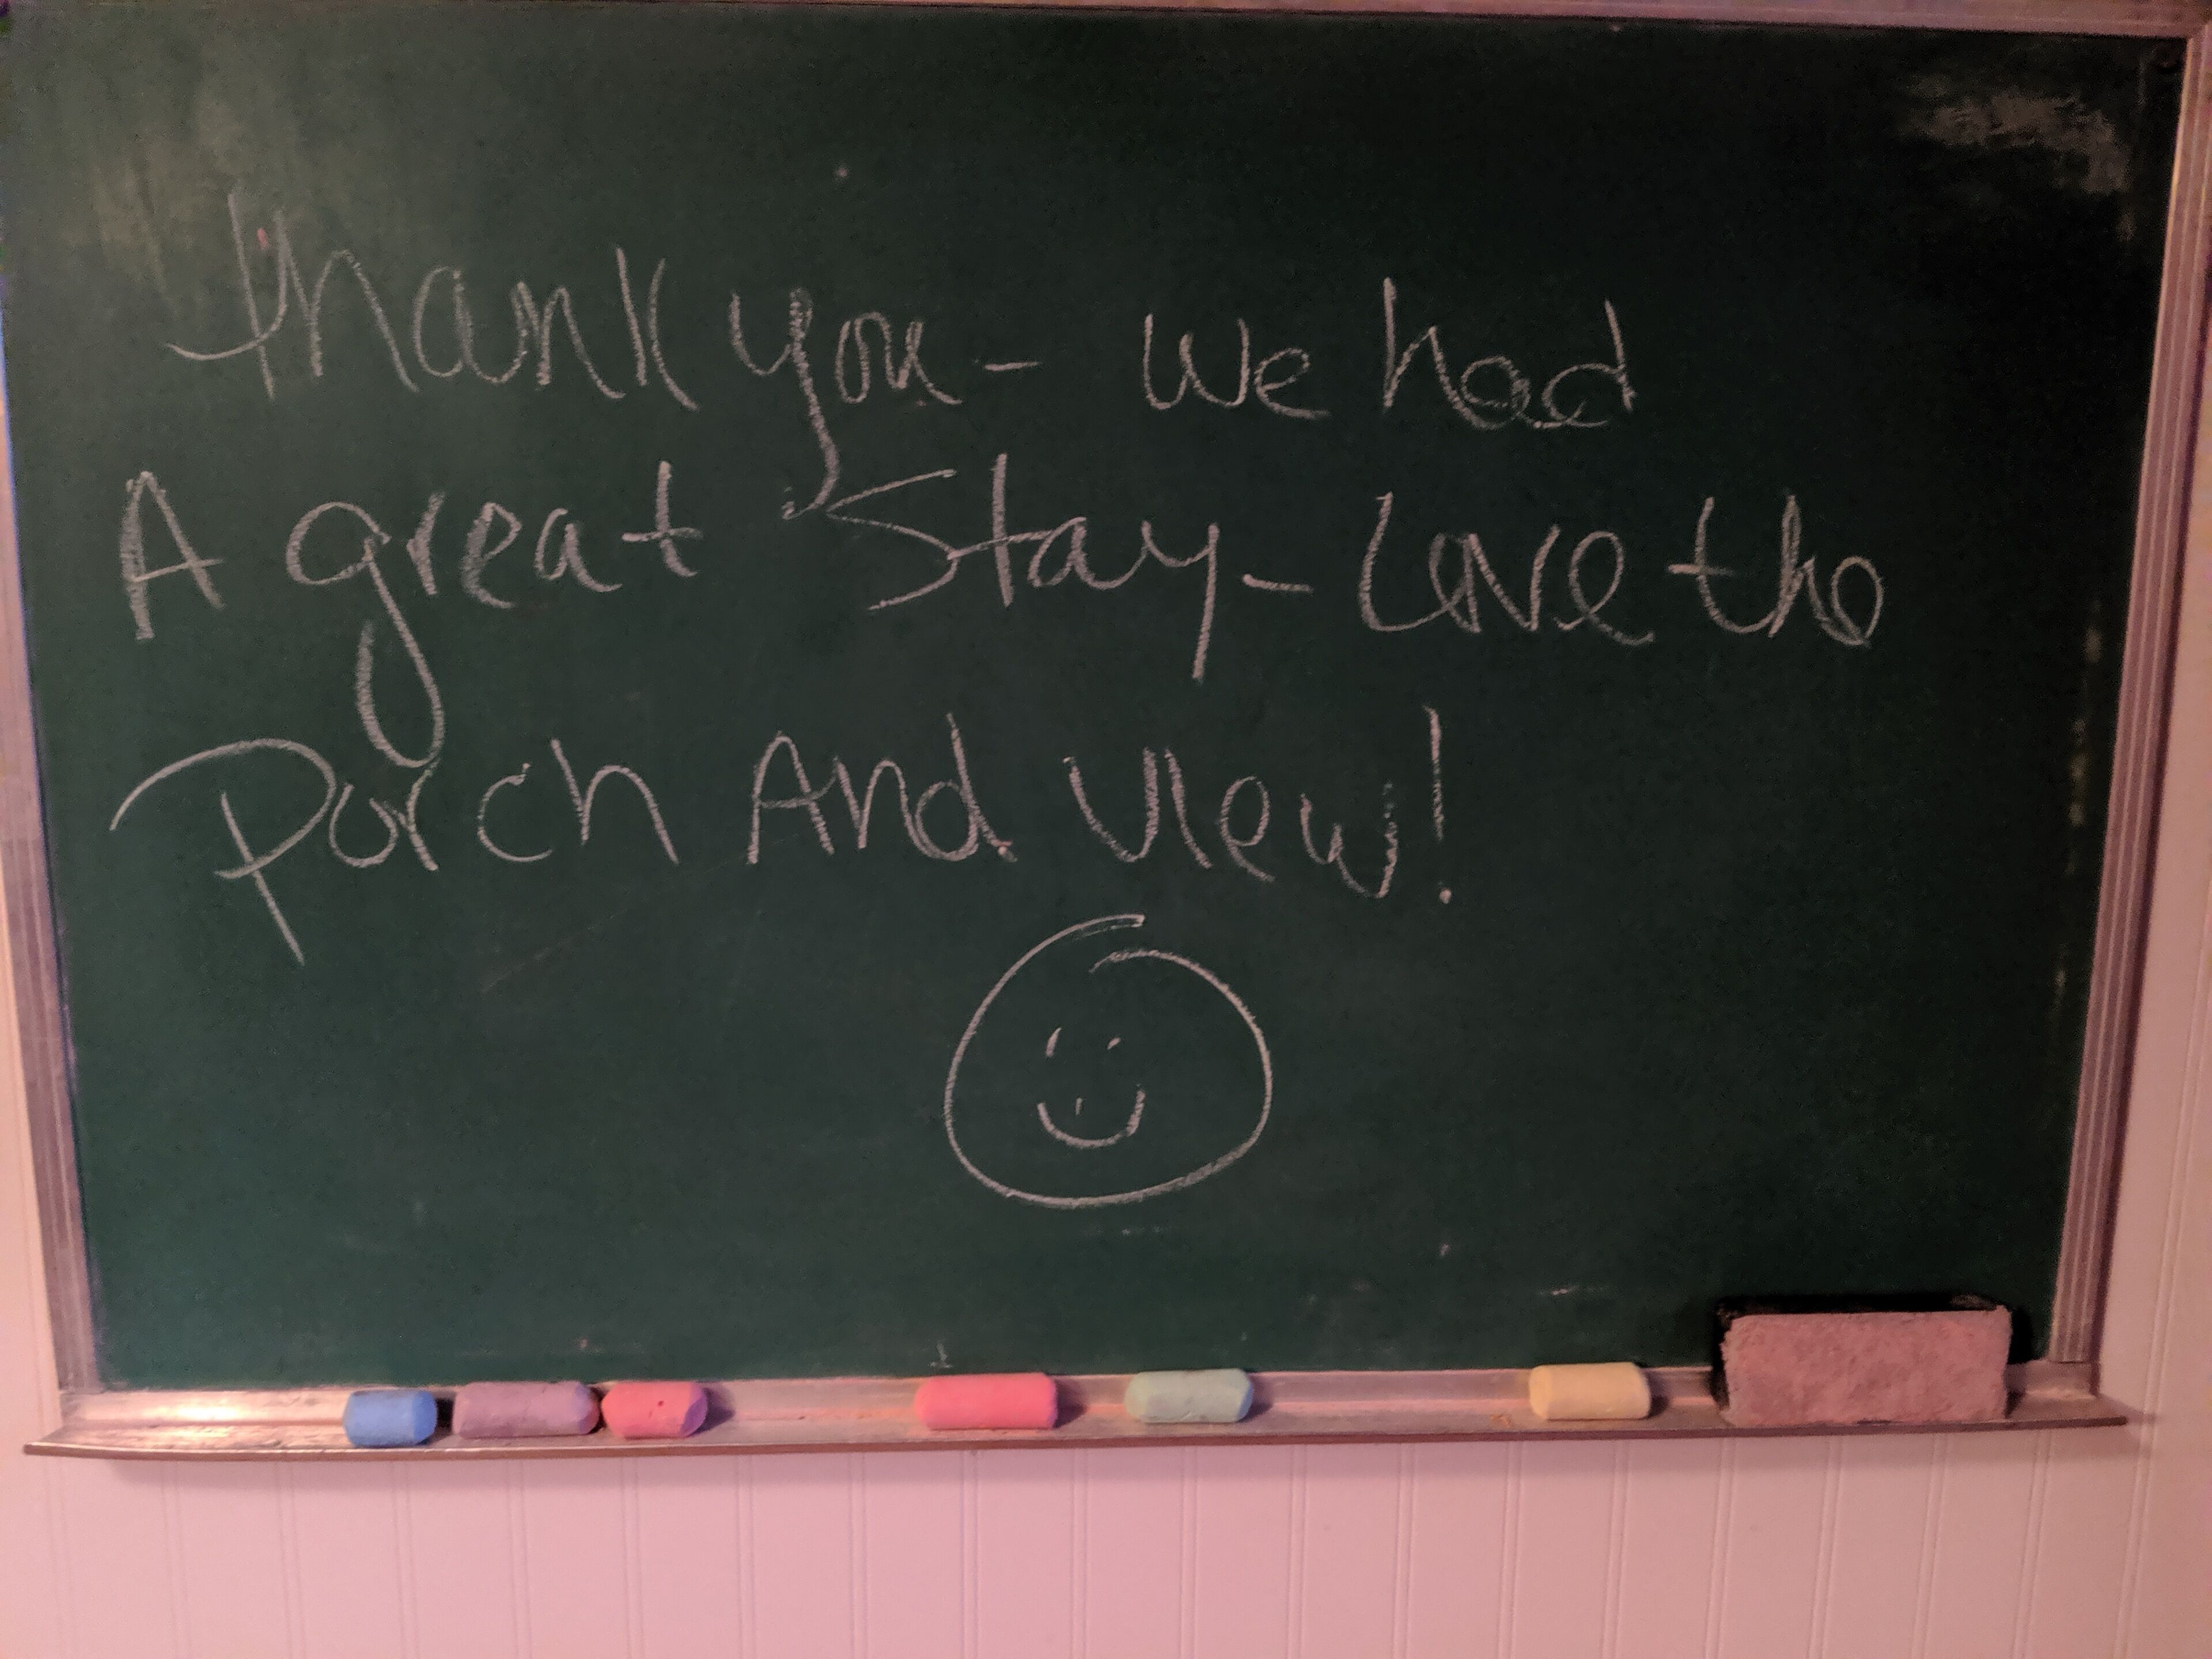 Thank you - We had
A great Stay - Love the
Porch And View!